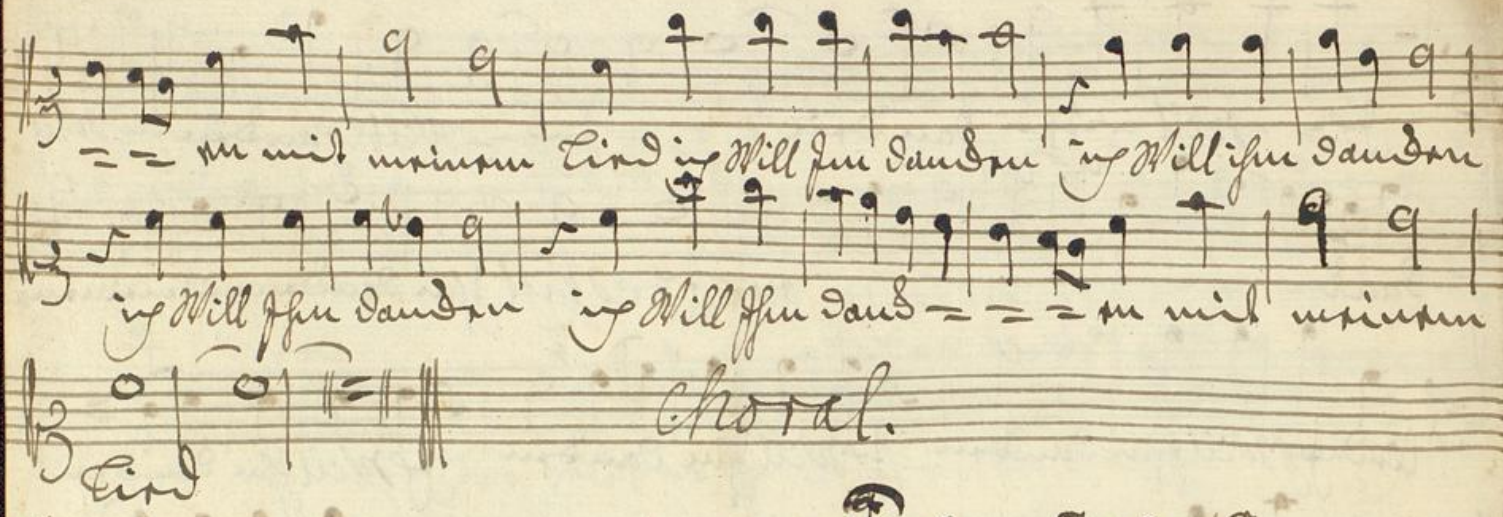 = = en mit meinem Lied ich Will Ihn dancken ich Will ihm dancken
ich Will Ihm dancken ich Will Ihm danck = = = en mit meinem
Choral.
Lied